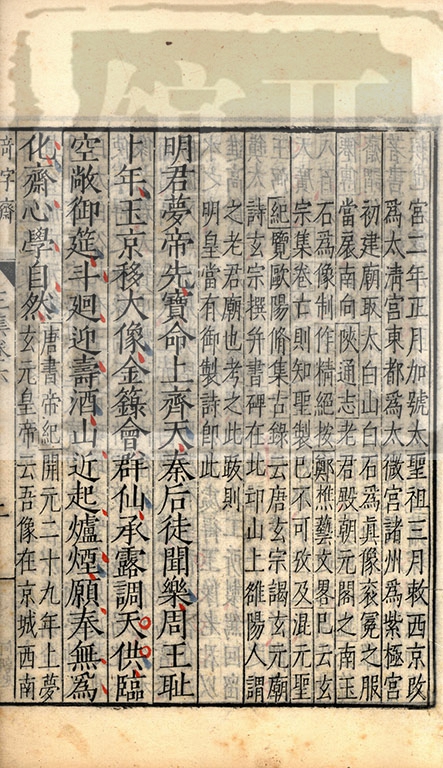 宮二年正月加號太聖祖三月敕西京改
爲太淸宮東都爲太微宮諸州爲紫極宮
初建廟取太白山白石爲眞像衮冕之服
當扆南向陜通志老君殿朝元閣之南玉
石爲像制作精絕按鄭樵藝文畧巳云玄
宗集卷亡則知聖製巳不可攷及混元聖
紀覽歐陽脩集古錄云唐玄宗謁玄元廟
詩玄宗撰幷書碑在北邙山上雒陽人謂
之老君廟也考之此跋則
明皇當有御製詩卽此
明君夢帝先寶命上齊天秦后徒聞樂周王耻
卜年玉京移大像金籙會群仙承露調天供臨
空敞御筵斗迴迎壽酒山近起爐煙願奉無爲
化齋心學自然唐書帝紀開元二十九年上夢
玄元皇帝云吾像在京城西南
奇字齋